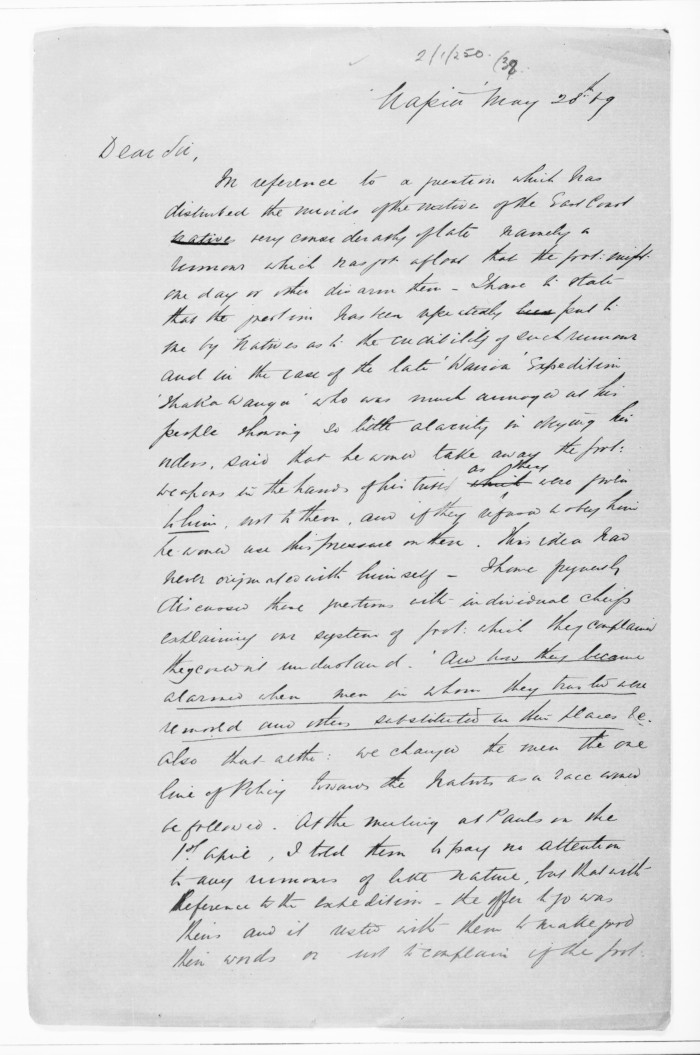 2/1/250. (39.
Napier May 28th 69
Dear Sir,
In reference to a question which has
disturbed the minds of the natives of the East Coast
natives very considerably of late namely a
rumour which has got afloat that the govt: might
one day or other disarm them – I have to state
that the question has been repeatedly been put to
me by Natives as to the credibility of such rumour
and in the case of the late 'Wairoa' Expedition
'Ihaka Wanga' who was much annoyed at his
people showing so little alacrity in obeying his
orders, said that he would take away the govt:
weapons in the hands of his tribe, which as they were given
to him, not to them, and if they refused to obey him
he would use this pressure on them. This idea had
never originated with himself – I have frequently
discussed these questions with individual chiefs
explaining our system of govt: which they complained
they could not understand. And how they became
alarmed when men in whom they trusted were
removed and others substituted in their places &c.
Also that altho: we changed the men the one
line of Policy towards the Natives as a race would
be followed. At the meeting at Pauls on the
1st April, I told them to pay no attention
to any rumours of like nature, but that with
Reference to the expedition – the offer to go was
theirs and it rested with them to make good
their words or not to complain if the govt: